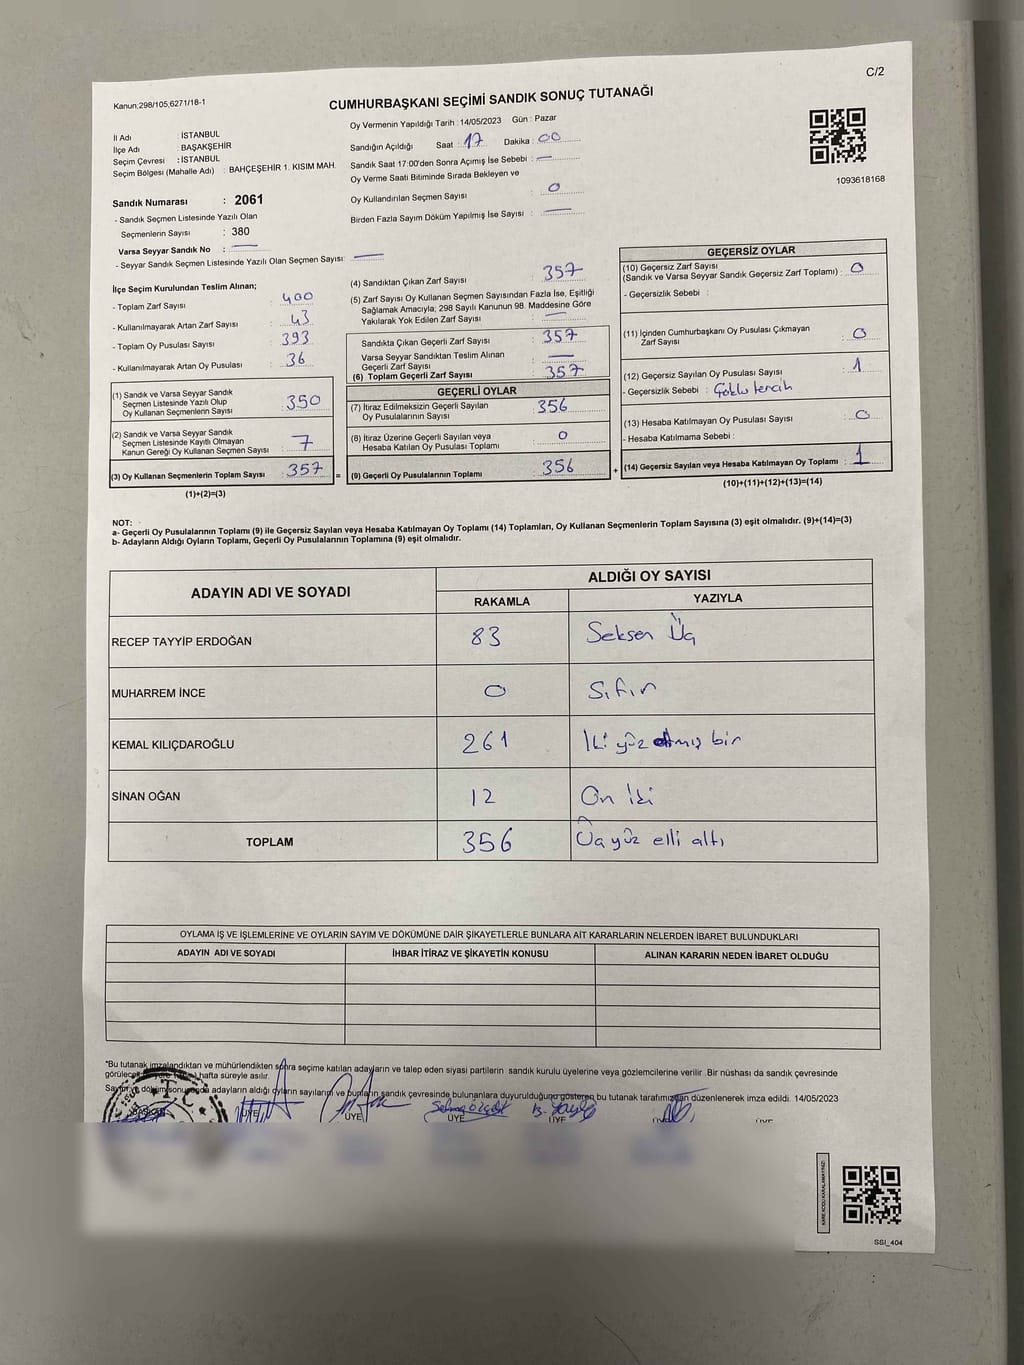 C/2
Kanun:298/105,6271/18-1
CUMHURBAŞKANI SEÇİMİ SANDIK SONUÇ TUTANAĞI
İl Adı : İSTANBUL
İlçe Adı : BAŞAKŞEHİR
Seçim Çevresi : İSTANBUL
Seçim Bölgesi (Mahalle Adı) : BAHÇEŞEHİR 1. KISIM MAH.
Oy Vermenin Yapıldığı Tarih : 14/05/2023 Gün : Pazar
Sandığın Açıldığı Saat : 17 Dakika : 00
Sandık Saat 17:00'den Sonra Açımış İse Sebebi : —
Oy Verme Saati Bitiminde Sırada Bekleyen ve
Oy Kullandırılan Seçmen Sayısı : 0
Birden Fazla Sayım Döküm Yapılmış İse Sayısı : —
1093618168
Sandık Numarası : 2061
- Sandık Seçmen Listesinde Yazılı Olan
Seçmenlerin Sayısı : 380
Varsa Seyyar Sandık No : —
- Seyyar Sandık Seçmen Listesinde Yazılı Olan Seçmen Sayısı: —
İlçe Seçim Kurulundan Teslim Alınan;
- Toplam Zarf Sayısı : 400
- Kullanılmayarak Artan Zarf Sayısı : 43
- Toplam Oy Pusulası Sayısı : 393
- Kullanılmayarak Artan Oy Pusulası : 36
(1) Sandık ve Varsa Seyyar Sandık
Seçmen Listesinde Yazılı Olup
Oy Kullanan Seçmenlerin Sayısı : 350
(2) Sandık ve Varsa Seyyar Sandık
Seçmen Listesinde Kayıtlı Olmayan
Kanun Gereği Oy Kullanan Seçmen Sayısı : 7
(3) Oy Kullanan Seçmenlerin Toplam Sayısı : 357 =
(1)+(2)=(3)
(4) Sandıktan Çıkan Zarf Sayısı : 357
(5) Zarf Sayısı Oy Kullanan Seçmen Sayısından Fazla İse, Eşitliği
Sağlamak Amacıyla; 298 Sayılı Kanunun 98. Maddesine Göre
Yakılarak Yok Edilen Zarf Sayısı : —
Sandıkta Çıkan Geçerli Zarf Sayısı : 357
Varsa Seyyar Sandıktan Teslim Alınan
Geçerli Zarf Sayısı : —
(6) Toplam Geçerli Zarf Sayısı : 357
GEÇERLİ OYLAR
(7) İtiraz Edilmeksizin Geçerli Sayılan
Oy Pusulalarının Sayısı : 356
(8) İtiraz Üzerine Geçerli Sayılan veya
Hesaba Katılan Oy Pusulası Toplamı : 0
(9) Geçerli Oy Pusulalarının Toplamı : 356 +
GEÇERSİZ OYLAR
(10) Geçersiz Zarf Sayısı
(Sandık ve Varsa Seyyar Sandık Geçersiz Zarf Toplamı) : 0
- Geçersizlik Sebebi :
(11) İçinden Cumhurbaşkanı Oy Pusulası Çıkmayan
Zarf Sayısı : 0
(12) Geçersiz Sayılan Oy Pusulası Sayısı : 1
- Geçersizlik Sebebi : Çoklu tercih
(13) Hesaba Katılmayan Oy Pusulası Sayısı : 0
- Hesaba Katılmama Sebebi :
(14) Geçersiz Sayılan veya Hesaba Katılmayan Oy Toplamı : 1
(10)+(11)+(12)+(13)=(14)
NOT:
a- Geçerli Oy Pusulalarının Toplamı (9) ile Geçersiz Sayılan veya Hesaba Katılmayan Oy Toplamı (14) Toplamları, Oy Kullanan Seçmenlerin Toplam Sayısına (3) eşit olmalıdır. (9)+(14)=(3)
b- Adayların Aldığı Oyların Toplamı, Geçerli Oy Pusulalarının Toplamına (9) eşit olmalıdır.
ADAYIN ADI VE SOYADI ALDIĞI OY SAYISI
RAKAMLA YAZIYLA
RECEP TAYYİP ERDOĞAN 83 Seksen Üç
MUHARREM İNCE 0 Sıfır
KEMAL KILIÇDAROĞLU 261 İki yüz atmış bir
SİNAN OĞAN 12 On İki
TOPLAM 356 Üç yüz elli altı
OYLAMA İŞ VE İŞLEMLERİNE VE OYLARIN SAYIM VE DÖKÜMÜNE DAİR ŞİKAYETLERLE BUNLARA AİT KARARLARIN NELERDEN İBARET BULUNDUKLARI
ADAYIN ADI VE SOYADI İHBAR İTİRAZ VE ŞİKAYETİN KONUSU ALINAN KARARIN NEDEN İBARET OLDUĞU
*Bu tutanak imzalandıktan ve mühürlendikten sonra seçime katılan adayların ve talep eden siyasi partilerin sandık kurulu üyelerine veya gözlemcilerine verilir .Bir nüshası da sandık çevresinde
hafta süreyle asılır.
adayların aldığı oyların sayılarını ve bunların sandık çevresinde bulunanlara duyurulduğunu gösteren bu tutanak tarafımızdan düzenlenerek imza edildi. 14/05/2023
BAŞKAN ÜYE ÜYE ÜYE ÜYE
SSI_404